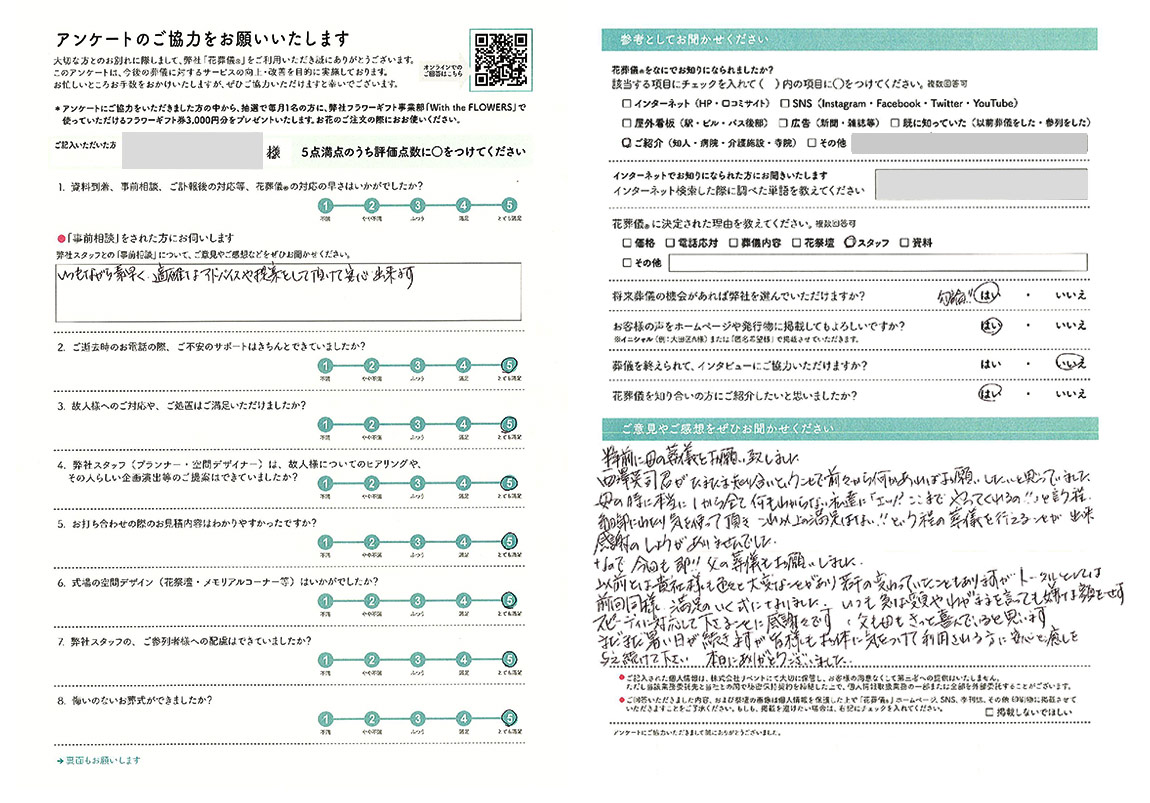 アンケートのご協力をお願いいたします
大切な方とのお別れに際しまして、弊社「花葬儀®」をご利用いただき誠にありがとうございます。
このアンケートは、今後の葬儀に対するサービスの向上・改善を目的に実施しております。
お忙しいところお手数をおかけいたしますが、ぜひご協力いただけますと幸いでございます。
オンラインでの
ご回答はこちら
*アンケートにご協力をいただきました方の中から、抽選で毎月1名の方に、弊社フラワーギフト事業部「With the FLOWERS」で
使っていただけるフラワーギフト券3,000円分をプレゼントいたします。お花のご注文の際にお使いください。
ご記入いただいた方 様 5点満点のうち評価点数に〇をつけてください
1. 資料到着、事前相談、ご訃報後の対応等、花葬儀®の対応の早さはいかがでしたか?
1 2 3 4 5
不満 やや不満 ふつう 満足 とても満足
●「事前相談」をされた方にお伺いします
弊社スタッフとの「事前相談」について、ご意見やご感想などをぜひお聞かせください。
いつもながら素早く、適確なアドバイスや提案をして頂けて安心出来ます
2. ご逝去時のお電話の際、ご不安のサポートはきちんとできていましたか?
1 2 3 4 5
不満 やや不満 ふつう 満足 とても満足
3. 故人様へのご対応や、ご処置はご満足いただけましたか?
1 2 3 4 5
不満 やや不満 ふつう 満足 とても満足
4. 弊社スタッフ(プランナー・空間デザイナー)は、故人様についてのヒアリングや、
その人らしい企画演出等のご提案はできていましたか?
1 2 3 4 5
不満 やや不満 ふつう 満足 とても満足
5. お打ち合わせの際のお見積内容はわかりやすかったですか?
1 2 3 4 5
不満 やや不満 ふつう 満足 とても満足
6. 式場の空間デザイン(花祭壇・メモリアルコーナー等)はいかがでしたか?
1 2 3 4 5
不満 やや不満 ふつう 満足 とても満足
7. 弊社スタッフの、ご参列者様への配慮はできていましたか?
1 2 3 4 5
不満 やや不満 ふつう 満足 とても満足
8. 悔いのないお葬式ができましたか?
1 2 3 4 5
不満 やや不満 ふつう 満足 とても満足
→裏面もお願いします
参考としてお聞かせください
花葬儀®をなにでお知りになられましたか?
該当する項目にチェックを入れて( )内の項目に〇をつけてください。複数回答可
□インターネット(HP・口コミサイト) □SNS(Instagram・Facebook・Twitter・YouTube)
□屋外看板(駅・ビル・バス後部) □広告(新聞・雑誌等) □既に知っていた(以前葬儀をした・参列をした)
□ご紹介(知人・病院・介護施設・寺院) □その他
インターネットでお知りになられた方にお聞きいたします
インターネット検索した際に調べた単語を教えてください
花葬儀®に決定された理由を教えてください。複数回答可
□価格 □電話応対 □葬儀内容 □花祭壇 □スタッフ □資料
□その他
将来葬儀の機会があれば弊社を選んでいただけますか? 勿論!! はい ・ いいえ
お客様の声をホームページや発行物に掲載してもよろしいですか? はい ・ いいえ
※イニシャル(例:大田区A様)または「匿名希望様」で掲載させていただきます。
葬儀を終えられて、インタビューにご協力いただけますか? はい ・ いいえ
花葬儀を知り合いの方にご紹介したいと思いましたか? はい ・ いいえ
ご意見やご感想をぜひお聞かせください
半年前に母の葬儀をお願い致しました
君がたまたま知り合いということで前々から何かあればお願いしたいと思っていました
母の時に本当に1から全て何もわからない私達に「エッ!?ここまでやってくれるの!!」と言う程
細部にわたり気を使って頂き これ以上の満足はない!!という程の葬儀を行えることが出来
感謝のしようがありませんでした。
なので 今回も即!!父の葬儀もお願いしました。
以前とは貴社様も色々と大変なことがあり若干の変わっていたこともありますがトータルとしては
前回同様 満足のいく式になりました。いつも急な変更やわがままを言っても嫌な顔をせず
スピーディに対応して下さることに感謝々です。父も母もきっと喜んでいると思います
まだまだ暑い日が続きますが皆様もお体に気をつけて利用される方に安心と癒しを
与え続けて下さい 本日にありがとうございました。
●ご記入された個人情報は、株式会社リベントにて大切に保管し、お客様の同意なくして第三者への提供はいたしません。
ただし当該業務委託先と当社との間で秘密保持契約を締結した上で、個人情報取扱業務の一部または全部を外部委託することがございます。
●ご回答いただきました内容、および祭壇の画像は個人情報を保護した上で「花葬儀®」ホームページ、SNS、季刊誌、その他印刷物に掲載させて
いただきますことをご了承ください。もしも、掲載を避けたい場合は、右記にチェックを入れてください。 □掲載しないでほしい
アンケートにご協力いただきまして誠にありがとうございました。